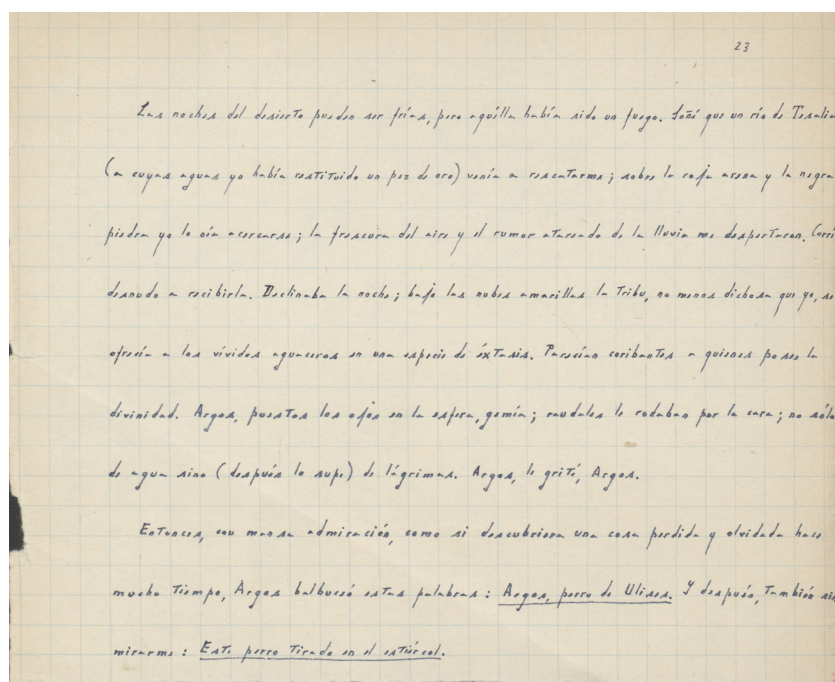 23
Las noches del desierto pueden ser frías, pero aquélla había sido un fuego. Soñé que un río de Tesalia
(a cuyas aguas yo había restituido un pez de oro) venía a rescatarme; sobre la roja arena y la negra
piedra yo lo oía acercarse; la frescura del aire y el rumor atareado de la lluvia me despertaron. Corrí
desnudo a recibirla. Declinaba la noche; bajo las nubes amarillas la tribu, no menos dichosa que yo, se
ofrecía a los vívidos aguaceros en una especie de éxtasis. Parecían coribantes a quienes posee la
divinidad. Argos, puestos los ojos en la esfera, gemía; raudales le rodaban por la cara; no sólo
de agua sino (después lo supe) de lágrimas. Argos, le grité, Argos.
Entonces, con mansa admiración, como si descubriera una cosa perdida y olvidada hace
mucho tiempo, Argos balbuceó estas palabras: Argos, perro de Ulises. Y después, también sin
mirarme: Este perro tirado en el estiércol.